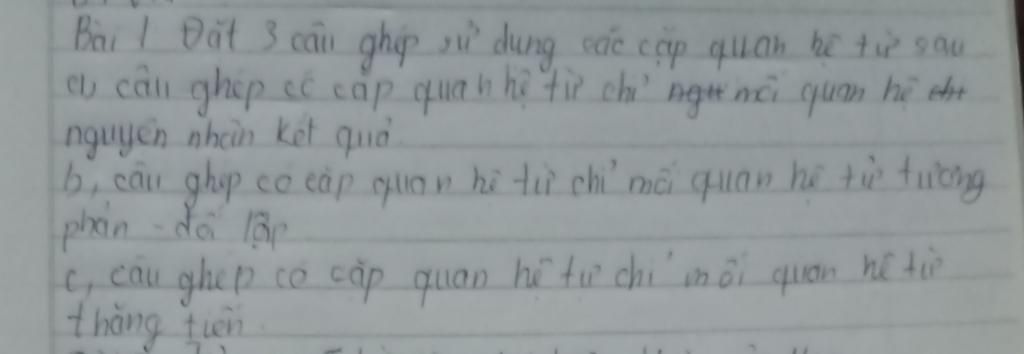 Bài 1 Đặt 3 câu ghép sử dụng các cặp quan hệ từ sau
a, câu ghép có cặp quan hệ từ chỉ mối quan hệ
nguyên nhân kết quả.
b, câu ghép có cặp quan hệ từ chỉ mối quan hệ từ tương
phản - đối lập
c, câu ghép có cặp quan hệ từ chỉ mối quan hệ từ
thăng tiến.